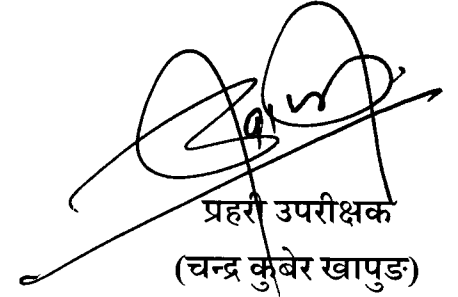 प्रहरी उपरीक्षक
(चन्द्र कुबेर खापुङ)